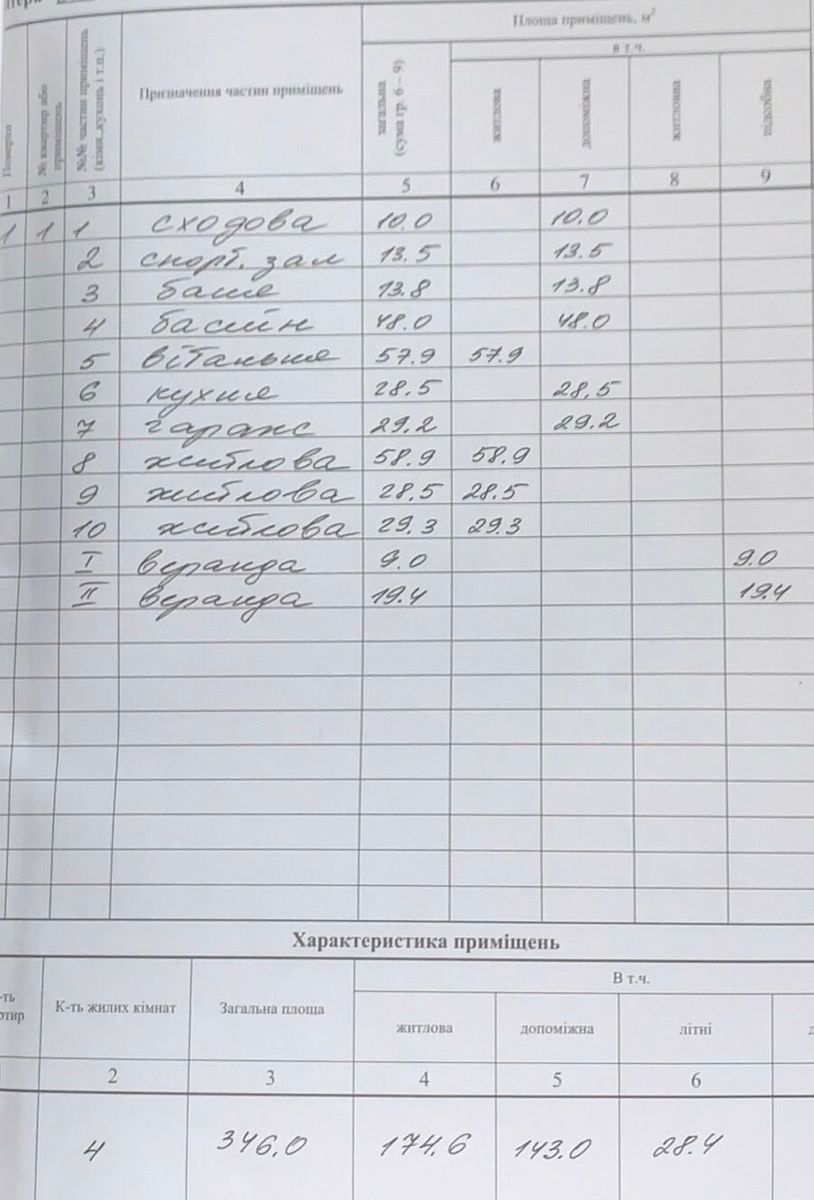 Площа приміщень, м²
в т.ч.
Поверхи
№ квартир або приміщень
№№ частин приміщень (кімн.,кухонь і т.п.)
Призначення частин приміщень
загальна (сума гр. 6 – 9)
житлова
допоміжна
підсобна
1 2 3 4 5 6 7 8 9
1 1 1 сходова 10.0 10.0
2 спорт. зал 13.5 13.5
3 баня 13.8 13.8
4 басейн 48.0 48.0
5 вітальня 57.9 57.9
6 кухня 28.5 28.5
7 гараж 29.2 29.2
8 житлова 58.9 58.9
9 житлова 28.5 28.5
10 житлова 29.3 29.3
I веранда 9.0 9.0
II веранда 19.4 19.4
Характеристика приміщень
К-ть жилих кімнат
Загальна площа
В т.ч.
житлова
допоміжна
літні
2 3 4 5 6
4 346,0 174.6 143.0 28.4